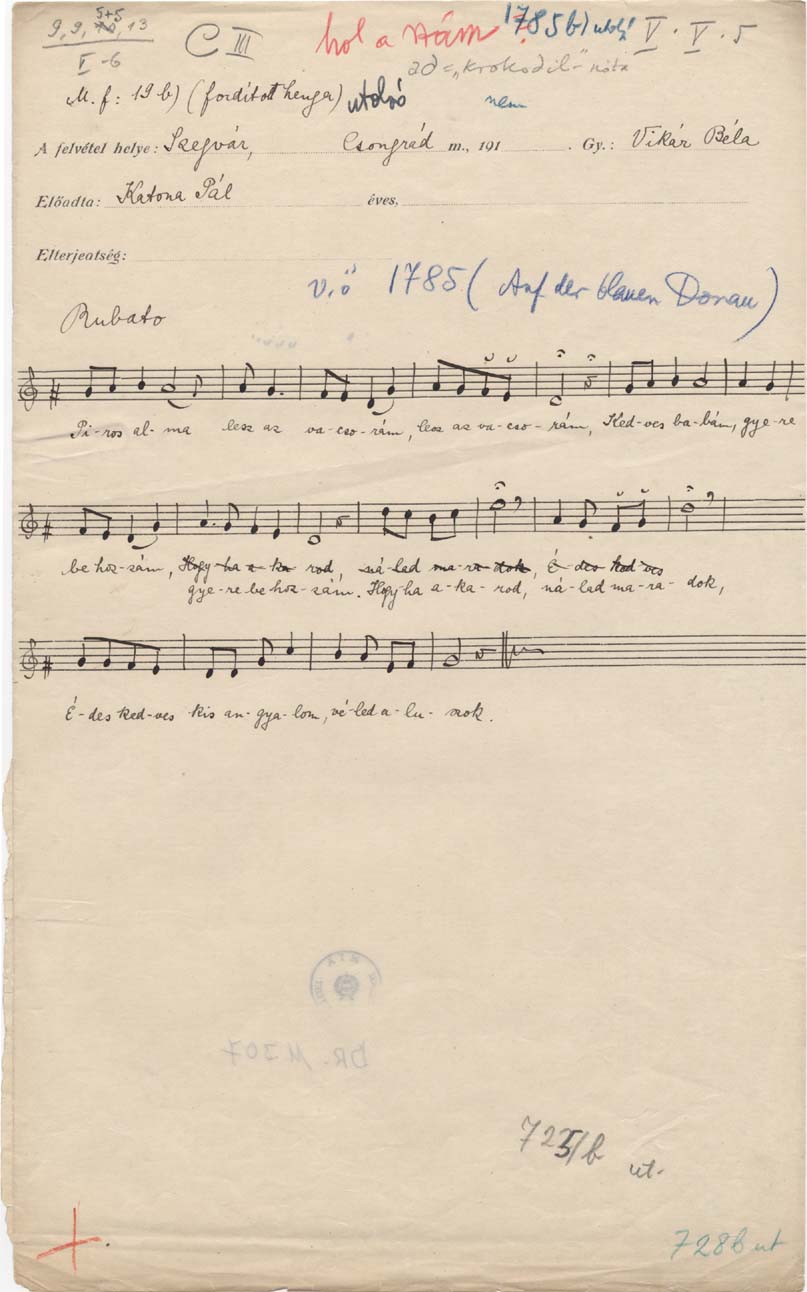 9, 9, 5+5, 13
V-6
C III
hol a szám?
1785 b) utolsó
V. V. 5
ad = „Krokodil" nóta
M. f: 19 b) (fordított henger) utolsó
nem
A felvétel helye: Szegvár, Csongrád m., 191 . Gy.: Vikár Béla
Előadta: Katona Pál éves,
Elterjedtség:
V. ö 1785 (Auf der blauen Donau)
Rubato
Pi-ros al-ma lesz az va-cso-rám, lesz az va-cso-rám, Ked-ves ba-bám, gye-re
be hoz-zám, Hogy-ha a-ka rod, ná-lad ma-ra-dok, É-des ked-ves
gye-re be hoz-zám. Hogy-ha a-ka-rod, ná-lad ma-ra-dok,
É-des ked-ves kis an-gya-lom, vé-led a-lu-szok.
MTA
DR. M 307
725/b
ut.
728b ut